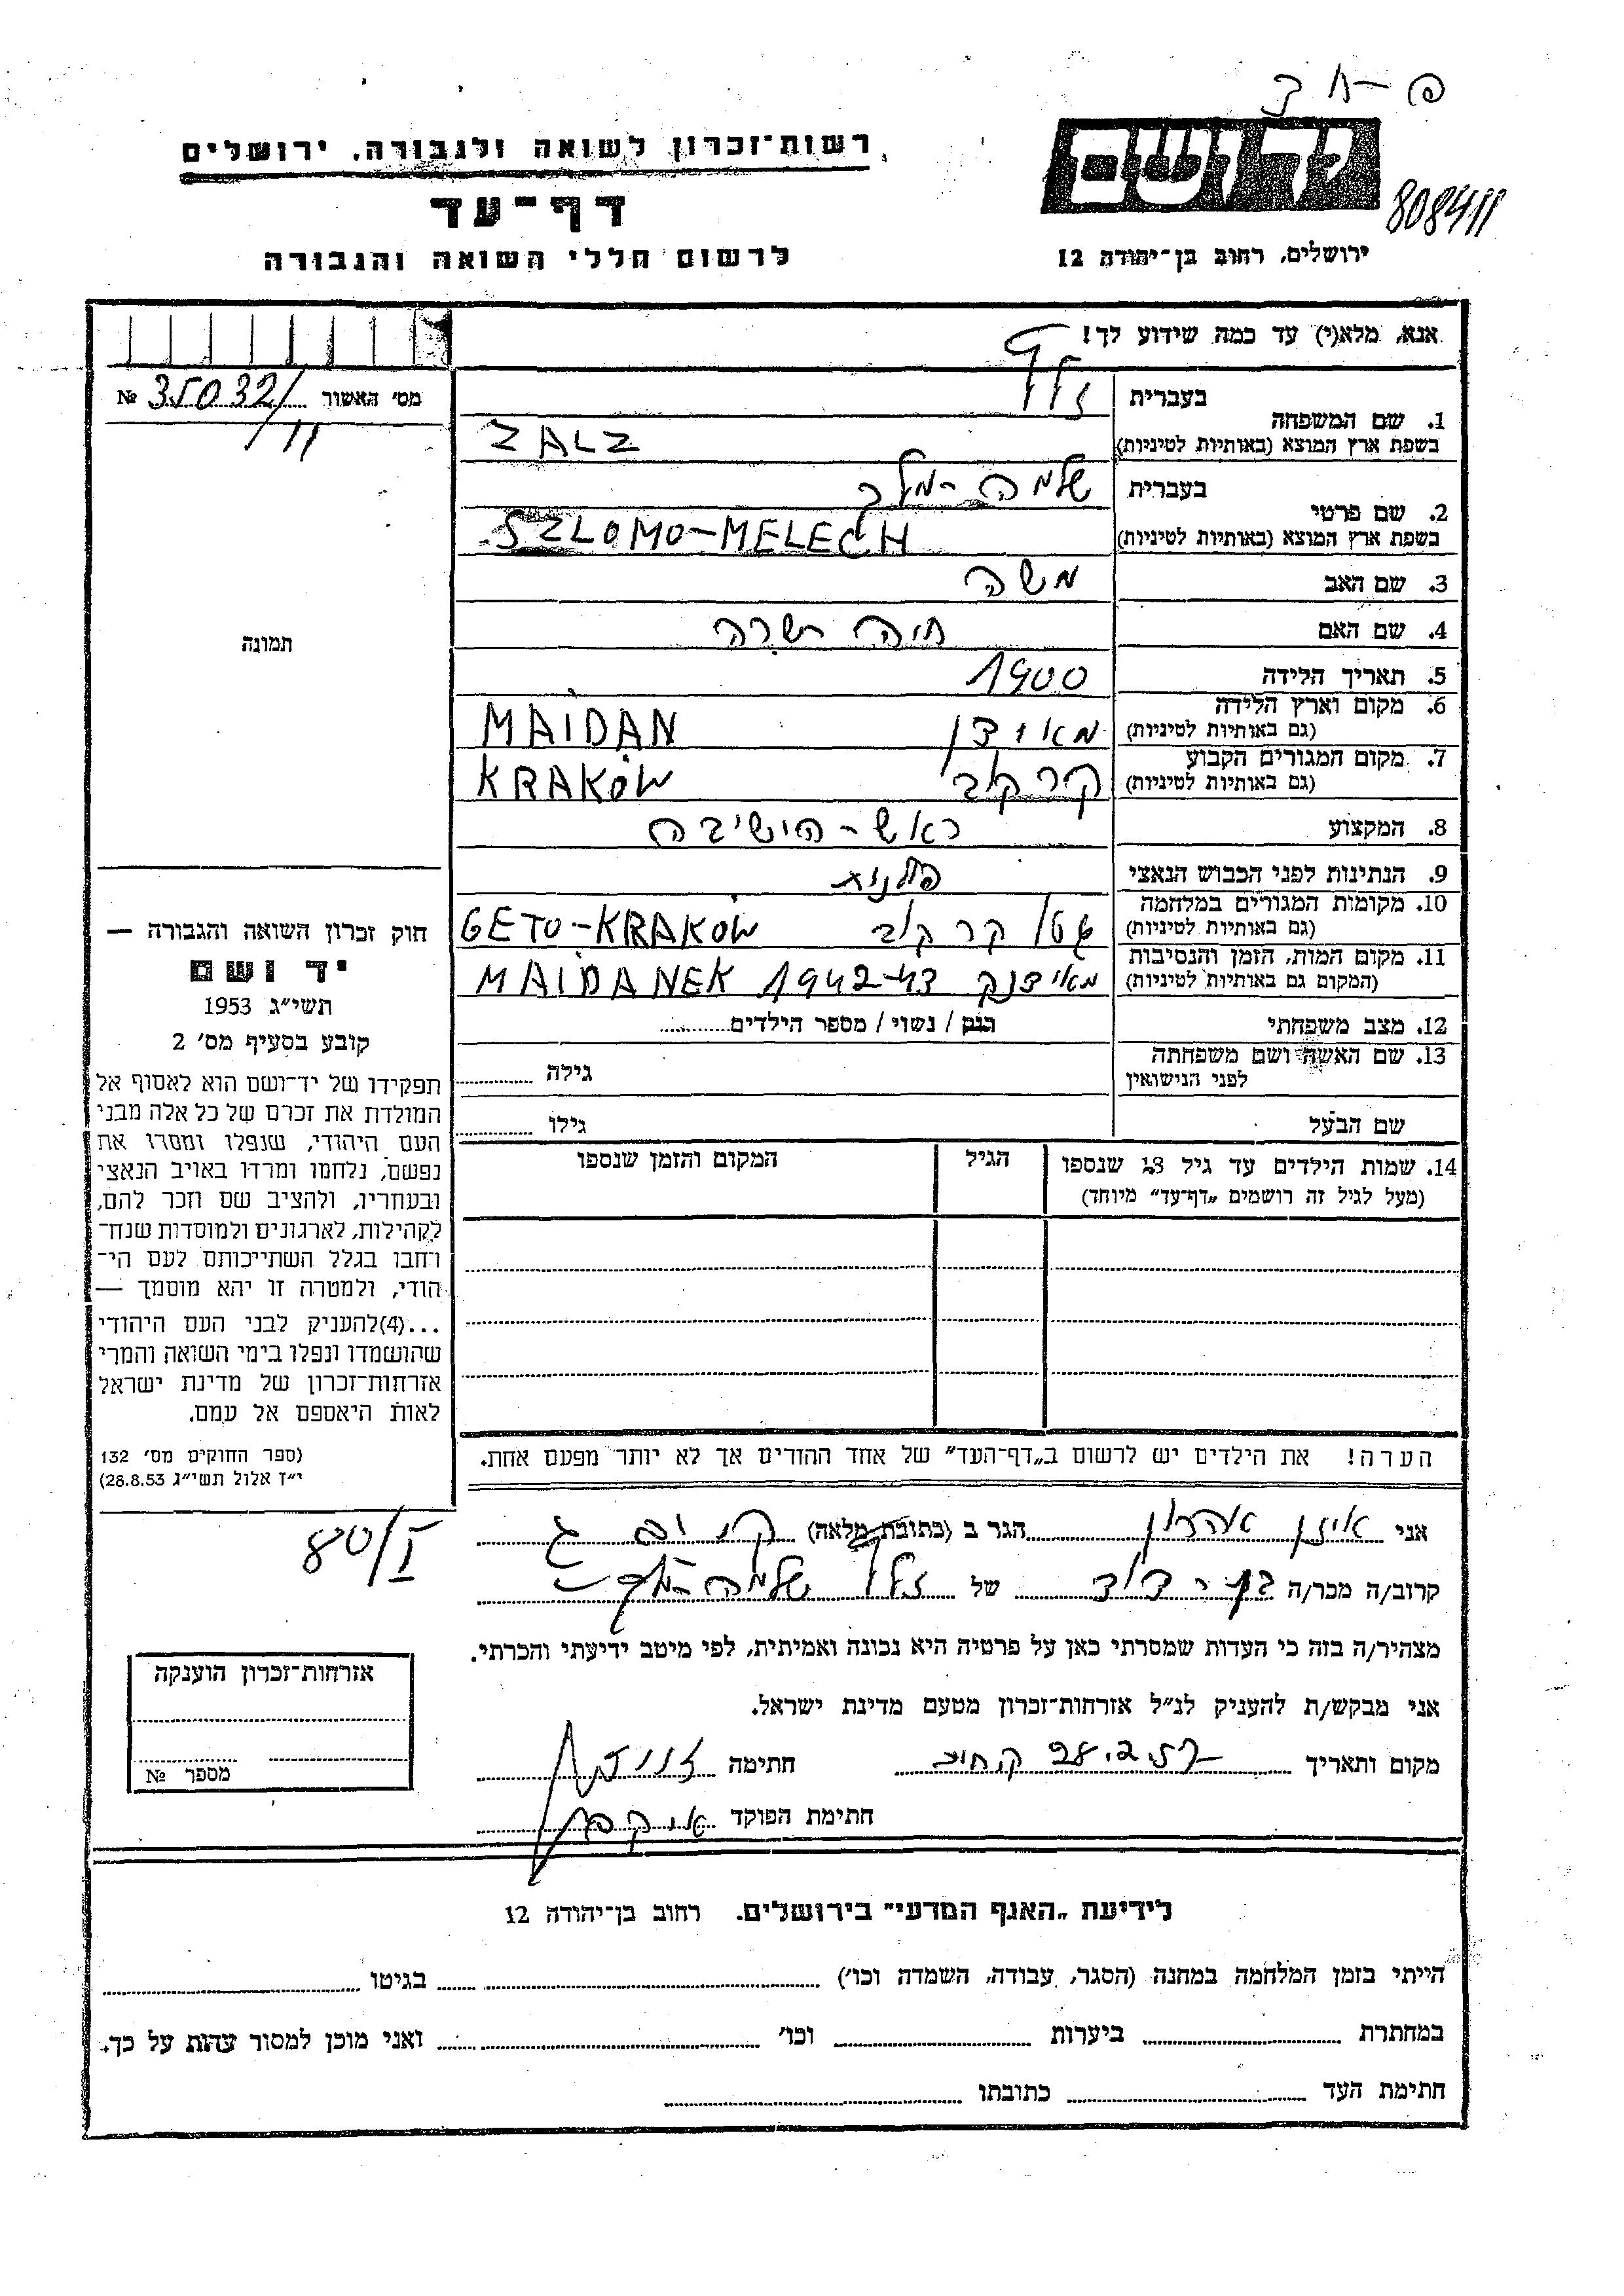 פ-ח ד
יד ושם
808411
רשות־זכרון לשואה ולגבורה, ירושלים
דף־עד
לרשום חללי השואה והגבורה
ירושלים, רחוב בן־יהודה 12
אנא, מלא(י) עד כמה שידוע לך!
מס' האשור № 35032/
11
1. שם המשפחה בעברית
בשפת ארץ המוצא (באותיות לטיניות) ZALZ
2. שם פרטי בעברית שלמה-מלך
בשפת ארץ המוצא (באותיות לטיניות) SZLOMO-MELECH
3. שם האב משה
4. שם האם חיה שרה
5. תאריך הלידה 1900
6. מקום וארץ הלידה
(גם באותיות לטיניות) מאידן MAIDAN
7. מקום המגורים הקבוע
(גם באותיות לטיניות) קרקוב KRAKÓW
8. המקצוע ראש-הישיבה
9. הנתינות לפני הכבוש הנאצי פולנית
10. מקומות המגורים במלחמה
(גם באותיות לטיניות) גטו קרקוב GETO-KRAKÓW
11. מקום המות, הזמן והנסיבות
(המקום גם באותיות לטיניות) מאידנק MAIDANEK 1942-43
12. מצב משפחתי רוק / נשוי / מספר הילדים
13. שם האשה ושם משפחתה
לפני הנישואין גילה
שם הבעל גילו
14. שמות הילדים עד גיל 18 שנספו הגיל המקום והזמן שנספו
(מעל לגיל זה רושמים „דף־עד" מיוחד)
הערה! את הילדים יש לרשום ב„דף־העד" של אחד ההורים אך לא יותר מפעם אחת.
תמונה
חוק זכרון השואה והגבורה —
יד ושם
תשי"ג 1953
קובע בסעיף מס' 2
תפקידו של יד־ושם הוא לאסוף אל
המולדת את זכרם של כל אלה מבני
העם היהודי, שנפלו ומסרו את
נפשם, נלחמו ומרדו באויב הנאצי
ובעוזריו, ולהציב שם וזכר להם,
לקהילות, לארגונים ולמוסדות שנח־
רבו בגלל השתייכותם לעם הי־
הודי, ולמטרה זו יהא מוסמך —
...(4)להעניק לבני העם היהודי
שהושמדו ונפלו בימי השואה והמרי
אזרחות־זכרון של מדינת ישראל
לאות היאספם אל עמם.
(ספר החוקים מס' 132
י"ז אלול תשי"ג 28.8.53)
80/I
אני אהרון הגר ב (כתובת מלאה)
קרוב/ה מכר/ה בן-דוד של שלמה-מלך
מצהיר/ה בזה כי העדות שמסרתי כאן על פרטיה היא נכונה ואמיתית, לפי מיטב ידיעתי והכרתי.
אני מבקש/ת להעניק לנ"ל אזרחות־זכרון מטעם מדינת ישראל.
מקום ותאריך חתימה
חתימת הפוקד
אזרחות־זכרון הוענקה
מספר №
לידיעת „האגף המדעי" בירושלים. רחוב בן־יהודה 12
הייתי בזמן המלחמה במחנה (הסגר, עבודה, השמדה וכו') בגיטו
במחתרת ביערות וכו' ואני מוכן למסור עדות על כך.
חתימת העד כתובתו